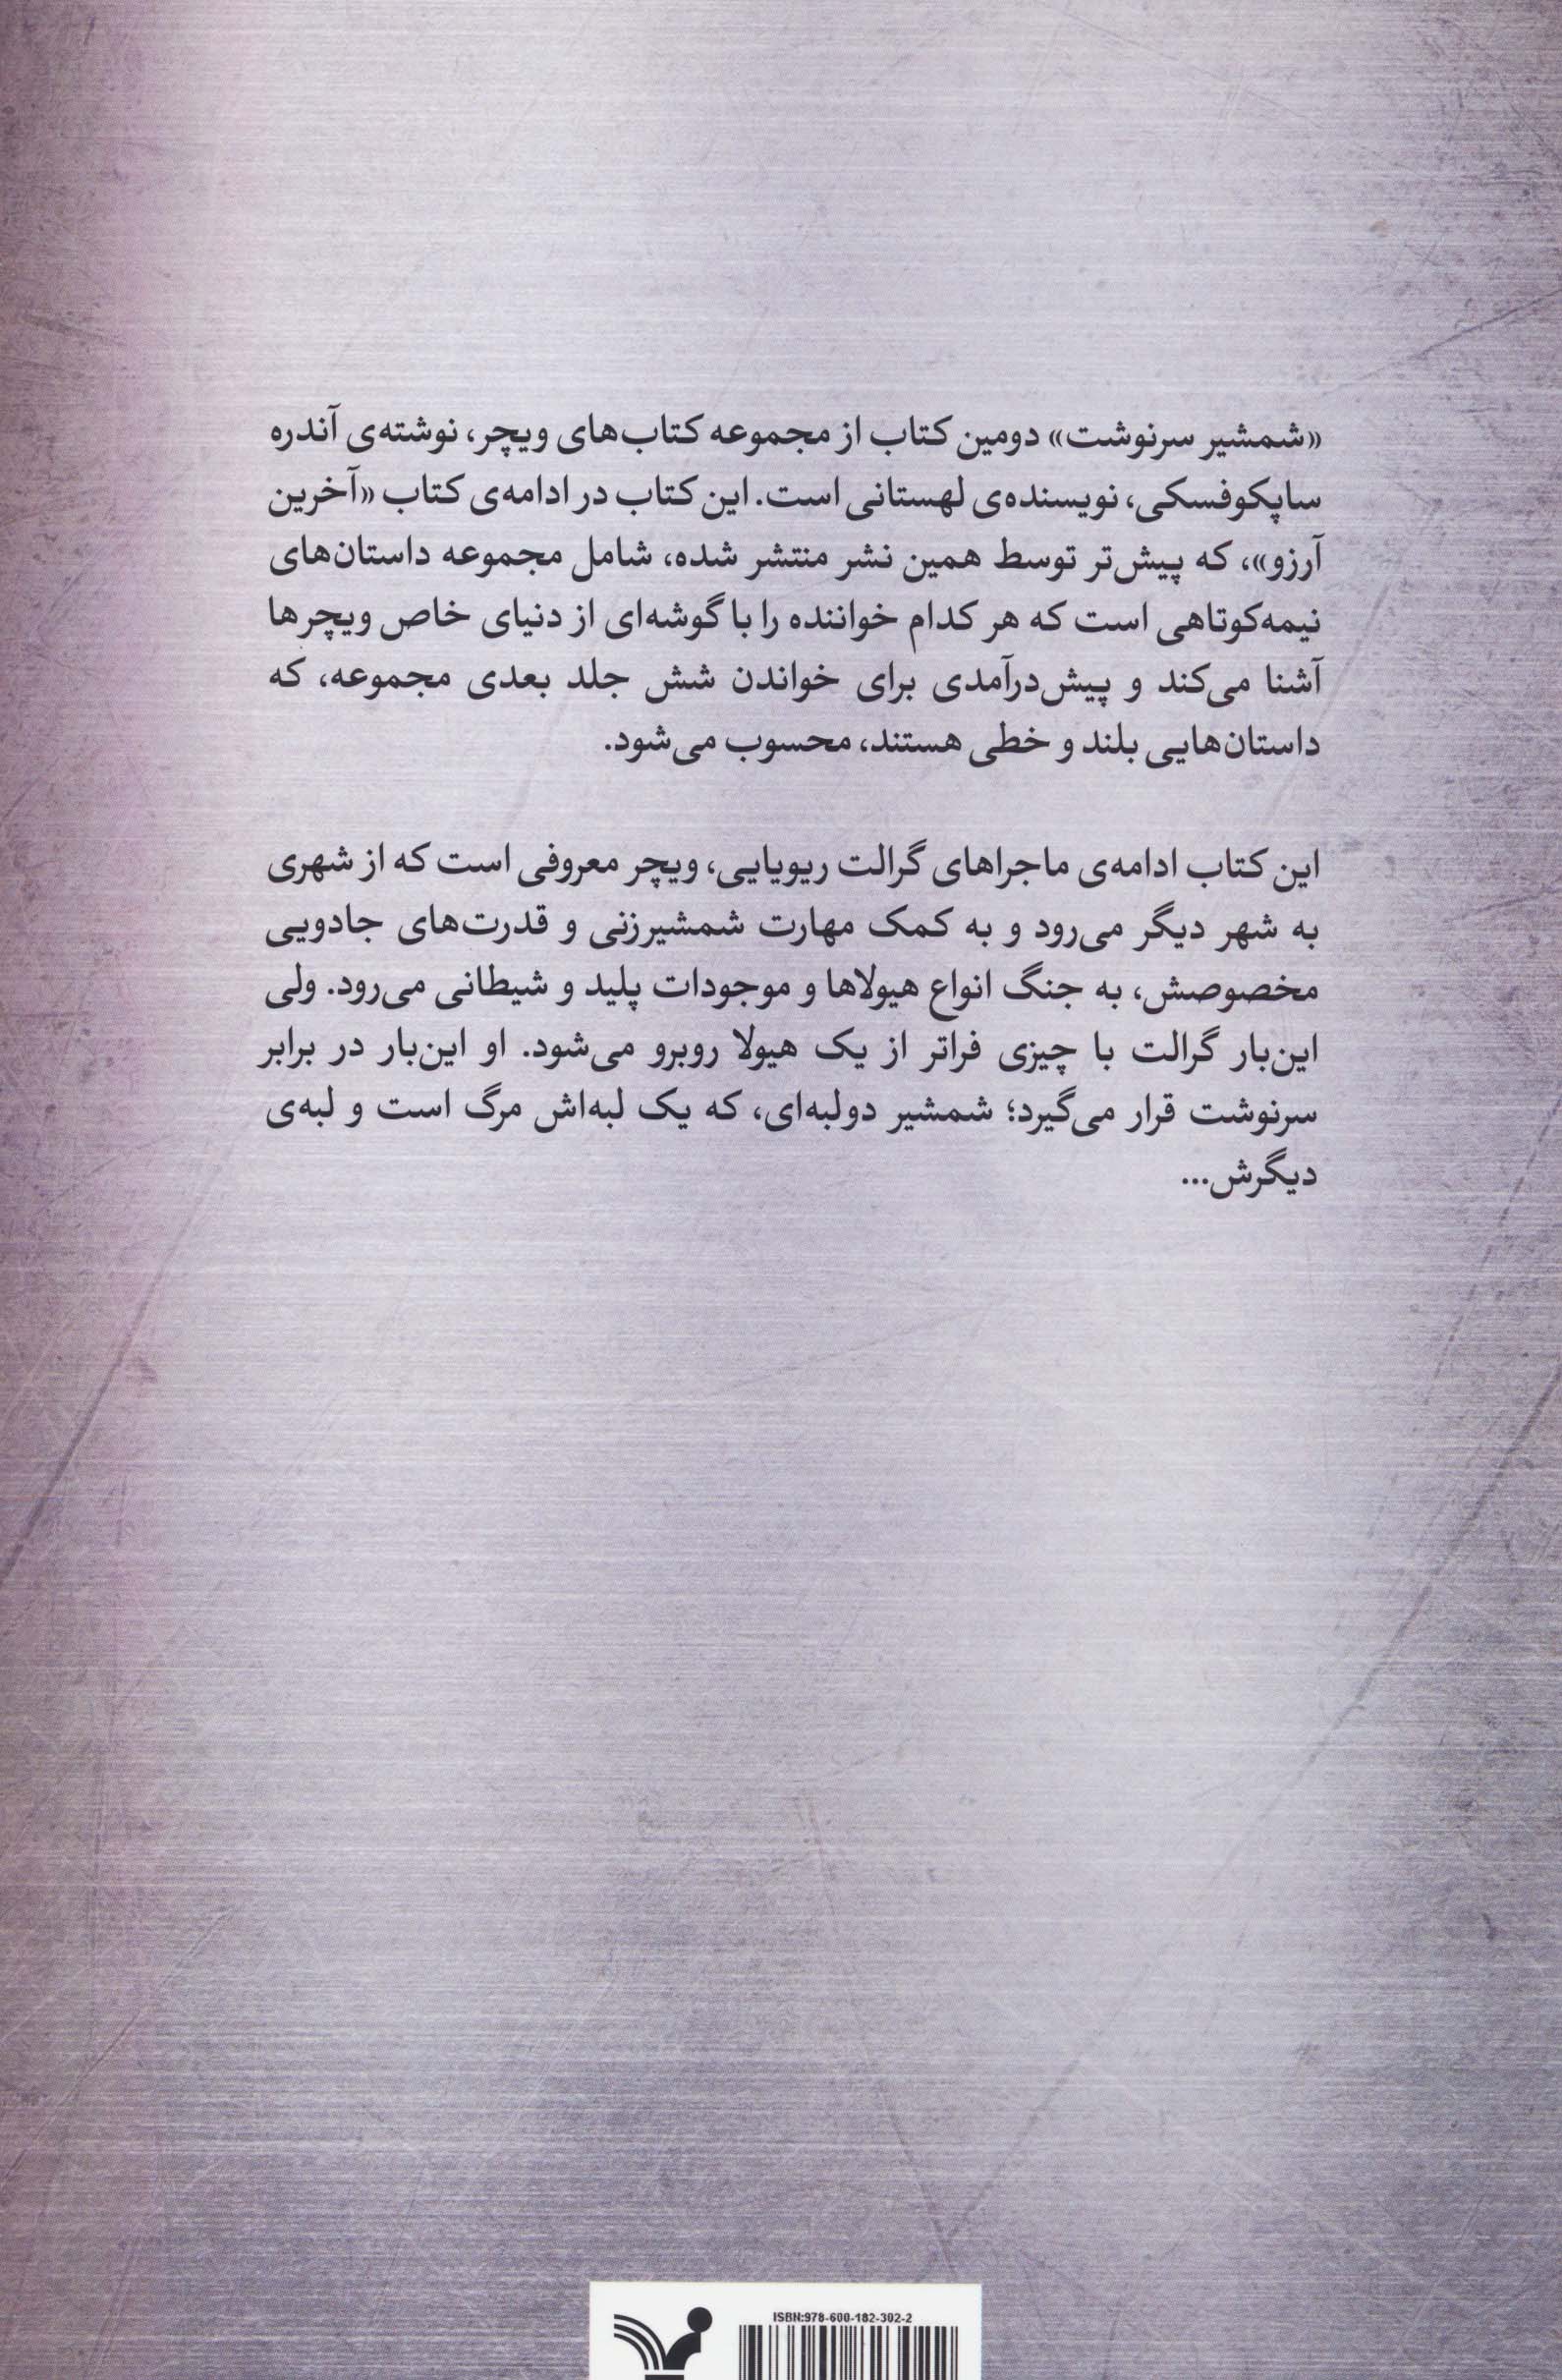 «شمشیر سرنوشت» دومین کتاب از مجموعه کتاب‌های ویچر، نوشته‌ی آندره
ساپکوفسکی، نویسنده‌ی لهستانی است. این کتاب در ادامه‌ی کتاب «آخرین
آرزو»، که پیش‌تر توسط همین نشر منتشر شده، شامل مجموعه داستان‌های
نیمه‌کوتاهی است که هر کدام خواننده را با گوشه‌ای از دنیای خاص ویچرها
آشنا می‌کند و پیش‌درآمدی برای خواندن شش جلد بعدی مجموعه، که
داستان‌هایی بلند و خطی هستند، محسوب می‌شود.
این کتاب ادامه‌ی ماجراهای گرالت ریویایی، ویچر معروفی است که از شهری
به شهر دیگر می‌رود و به کمک مهارت شمشیرزنی و قدرت‌های جادویی
مخصوصش، به جنگ انواع هیولاها و موجودات پلید و شیطانی می‌رود. ولی
این‌بار گرالت با چیزی فراتر از یک هیولا روبرو می‌شود. او این‌بار در برابر
سرنوشت قرار می‌گیرد؛ شمشیر دولبه‌ای، که یک لبه‌اش مرگ است و لبه‌ی
دیگرش...
ISBN:978-600-182-302-2